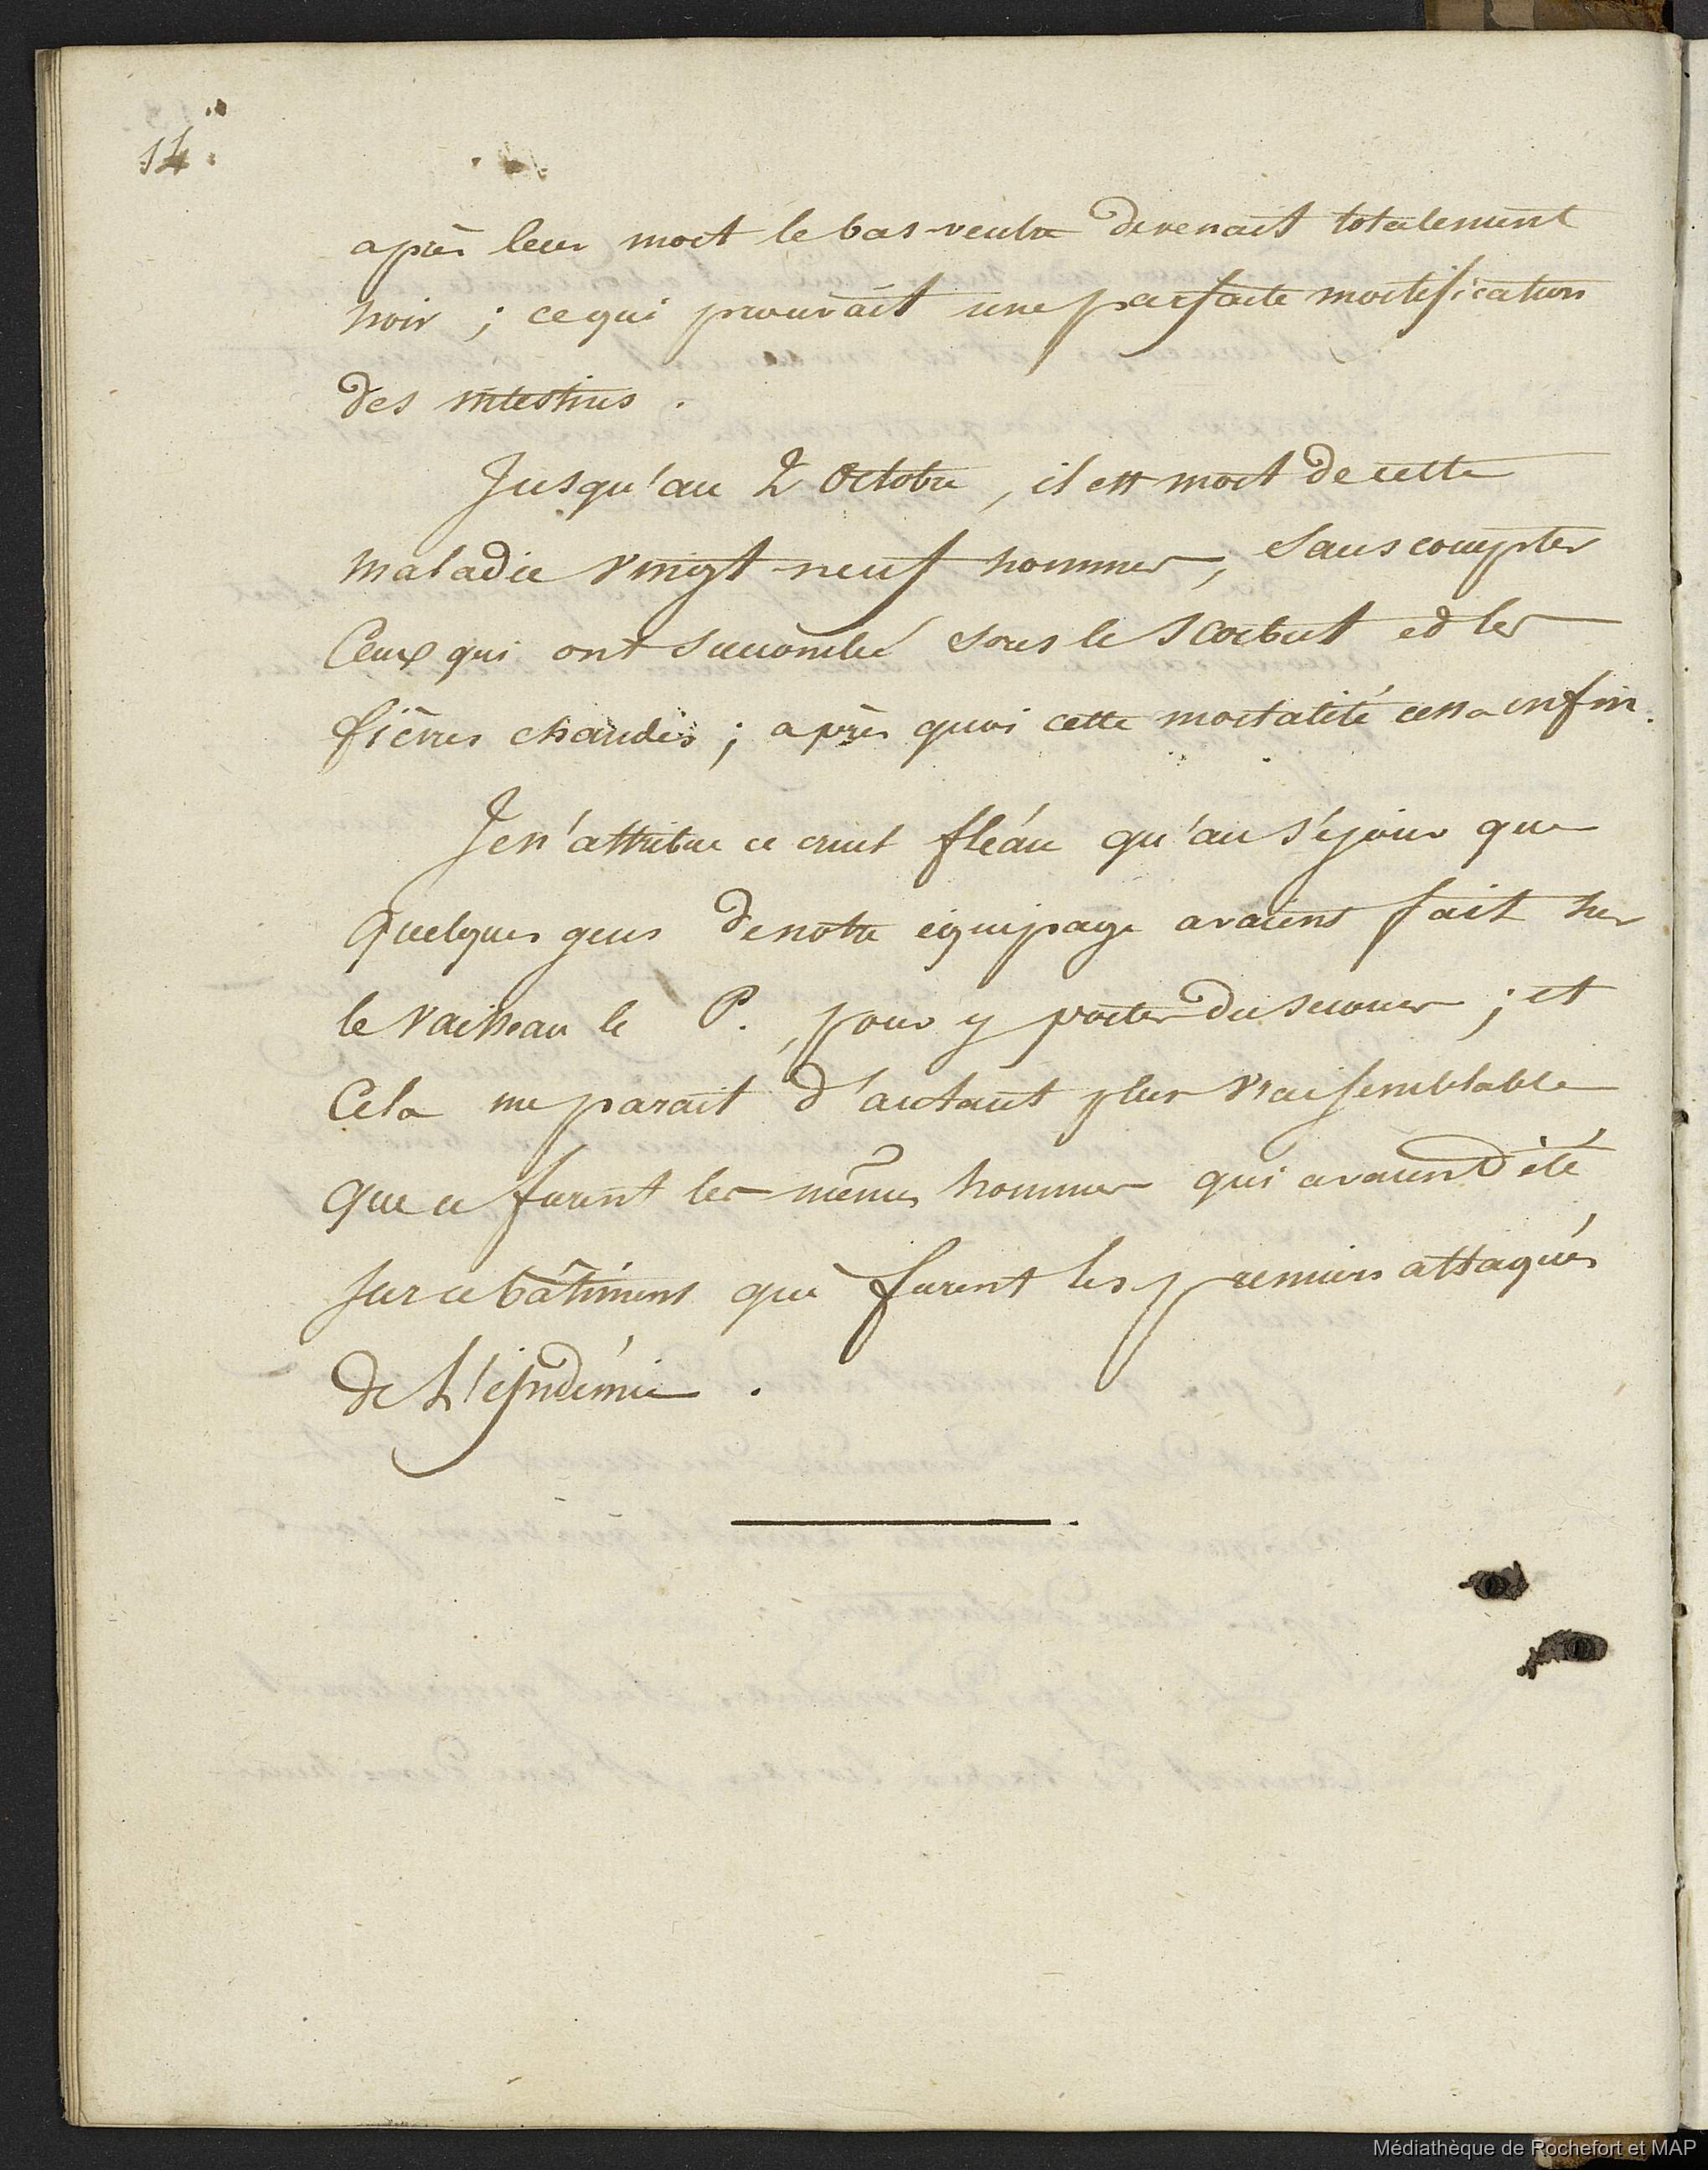 14.
après leur mort le bas-ventre devenait totalement
noir ; ce qui prouvait une parfaite mortification
des intestins.
Jusqu'au 2 Octobre, il est mort de cette
maladie vingt-neuf hommes, sans compter
Ceux qui ont succombé sous le scorbut et les
fièvres chaudes ; après quoi cette mortalité cessa enfin.
Je n'attribue ce cruel fléau qu'au séjour que
quelques gens de notre équipage avaient fait sur
le vaisseau le P., pour y porter du secours ; et
Cela me parait d'autant plus vraisemblable
que ce furent les mêmes hommes qui avaient été
sur ce bâtiment qui furent les premiers attaqués
de L'épidémie.
Médiathèque de Rochefort et MAP